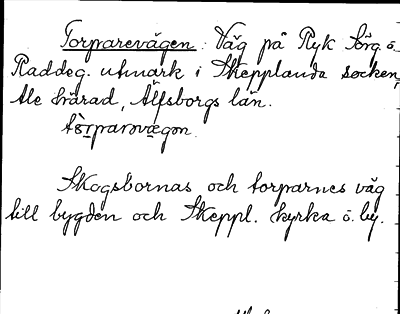 Torparevägen: Väg på Ryk Sörg. o.
Raddeg. utmark i Skepplanda socken,
Ale härad, Älfsborgs län.
tòrparəvægən.
Skogsbornas och torparnes väg
till bygden och Skeppl. kyrka o. by.